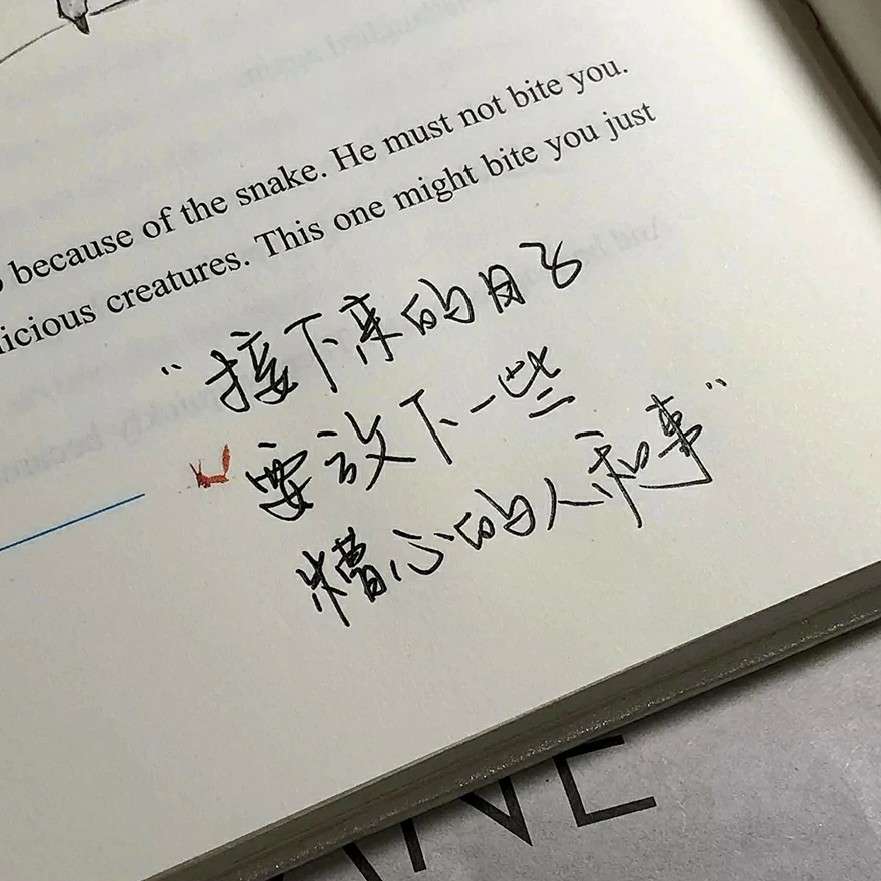 because of the snake. He must not bite you.
licious creatures. This one might bite you just
“接下来的日子
要放下一些
糟心的人和事”
ANE